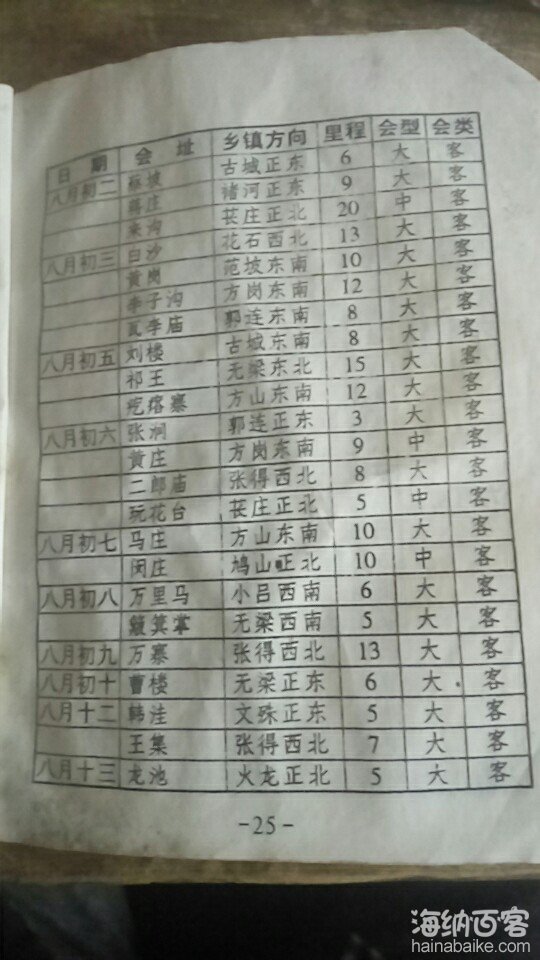 日 期 会 址 乡镇方向 里程 会型 会类
八月初二 蔡坡 古城正东 6 大 客
蒋庄 褚河正东 9 大 客
来沟 苌庄正北 20 中 客
八月初三 白沙 花石西北 13 大 客
黄岗 范坡东南 10 大 客
李子沟 方岗东南 12 大 客
瓦李庙 郭连东南 8 大 客
八月初五 刘楼 古城东南 8 大 客
祁王 无梁东北 15 大 客
疙瘩寨 方山东南 12 大 客
八月初六 张涧 郭连正东 3 大 客
黄庄 方岗东南 9 中 客
二郎庙 张得西北 8 大 客
玩花台 苌庄正北 5 中 客
八月初七 马庄 方山东南 10 大 客
闵庄 鸠山正北 10 中 客
八月初八 万里马 小吕西南 6 大 客
簸箕掌 无梁西南 5 大 客
八月初九 万寨 张得西北 13 大 客
八月初十 曹楼 无梁正东 6 大 客
八月十二 韩洼 文殊正东 5 大 客
王集 张得西北 7 大 客
八月十三 龙池 火龙正北 5 大 客
-25-
海纳百客
hainabaike.com